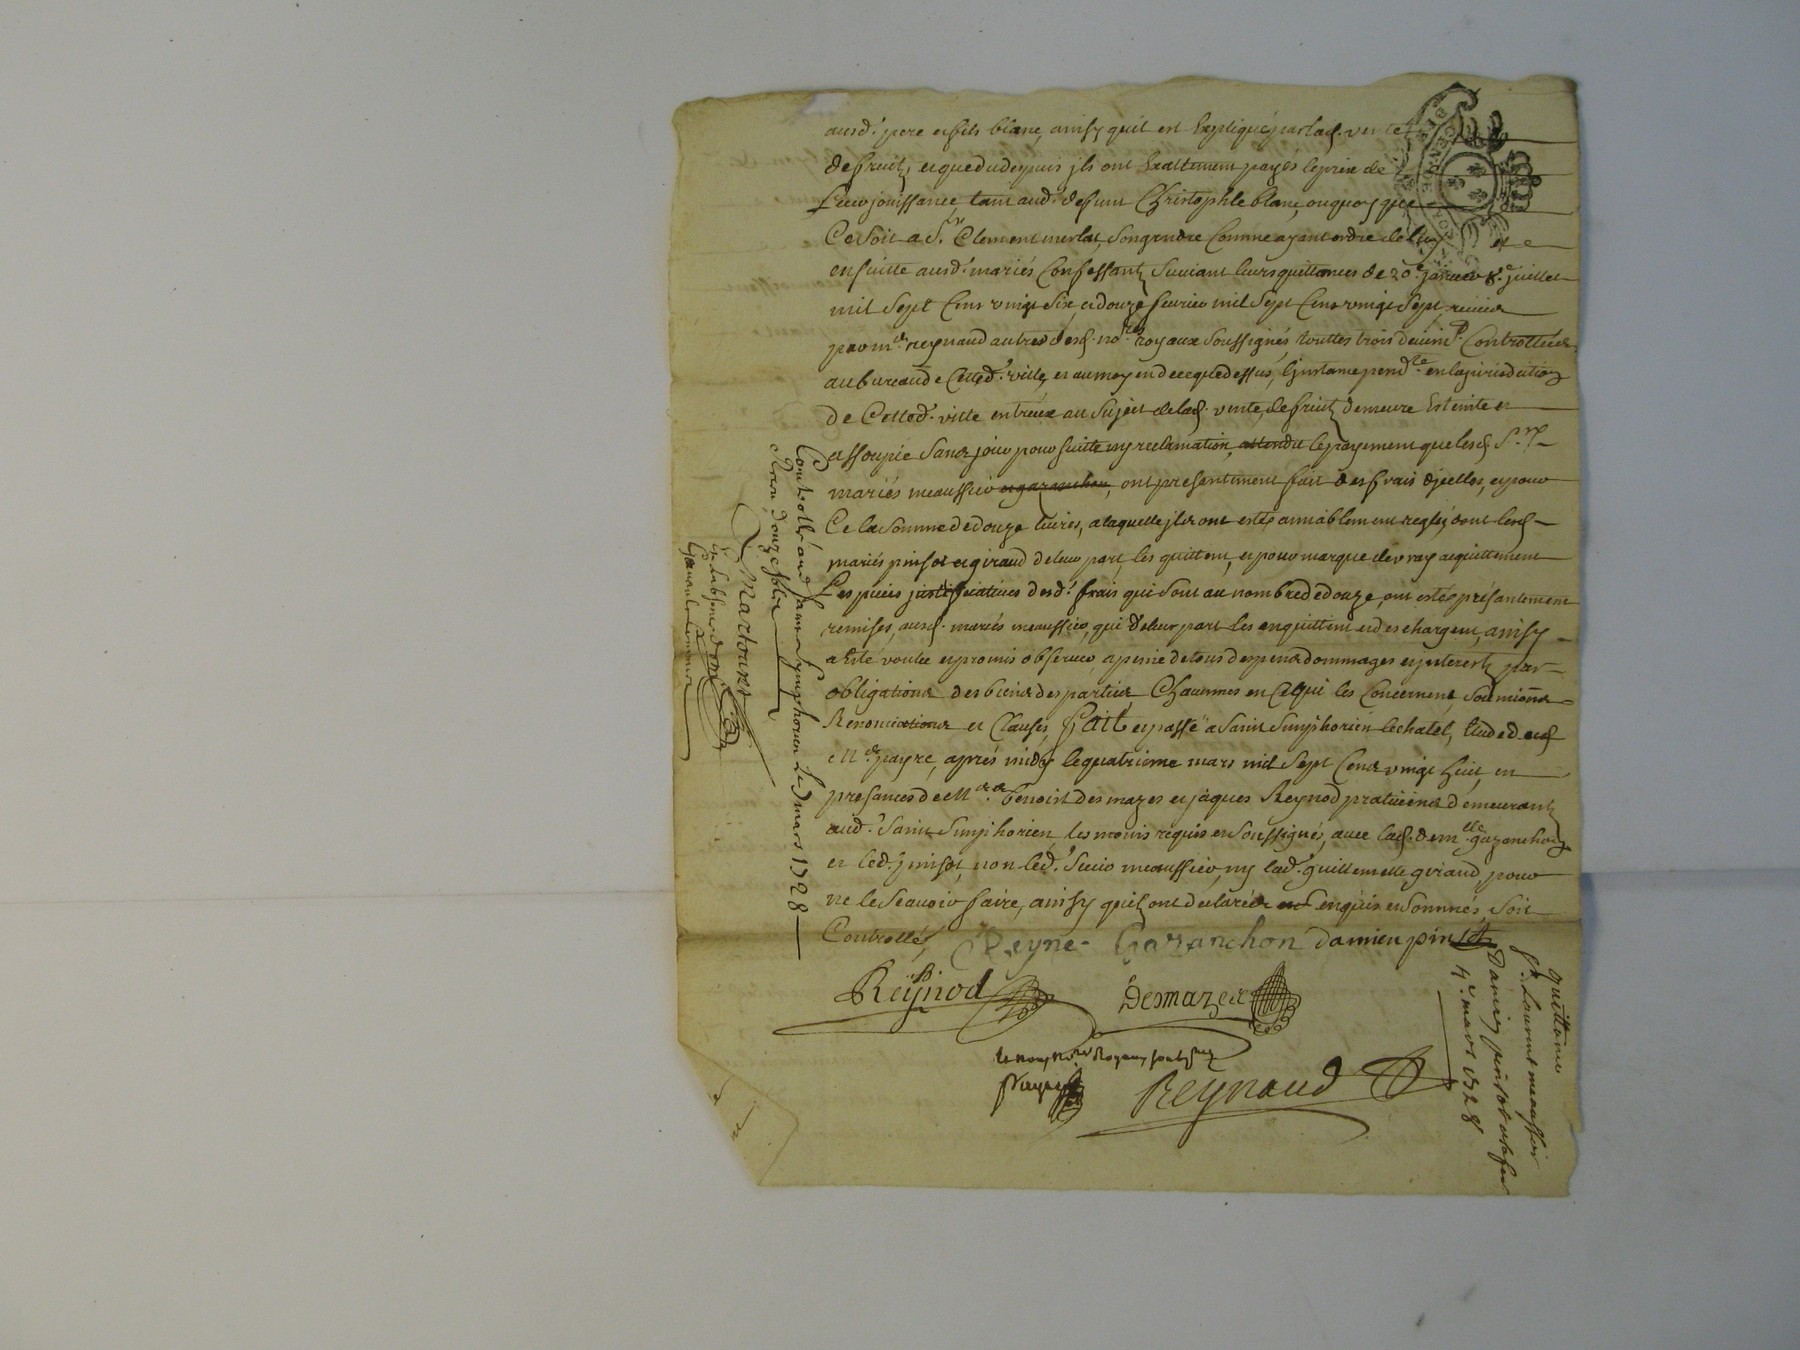 ausd. pere et fils blanc, ainsy quil est Expliqué par lad. vente
de fruitz, et que du depuis ils ont Exattement payés le prix de
Leur jouissance, tant aud. defunt Christophle blanc, ou quoy que
Ce soit a Sr. Clement merlat, son gendre Comme ayant ordre de luy et
ensuitte ausd. mariés Confessantz suivant leurs quittances de 20e. janvier 8e. juillet
mil sept Cens vingt six, et douze fevrier mil sept Cens vingt sept, receües
par me. reynaud autre desd. nores. royaux soussignés touttes trois deüemt. Controllées
au bureau de Cetted. ville, et au moyen de ce que dessus, L'instance pendte. en la jurisdiction
de Cetted. ville entreux au sujet de lad. vente de fruitz demeure Esteinte et
assoupie sans pour suitte ny reclamation, attendu le payement que lesd. Srs.
mariés meaussier et garanchon, ont presentement fait des frais d'jcelles, et pour
Ce la somme de douze livres, a laquelle jls ont estés amiablement reglés, dont lesd.
mariés pinsot et giraud de leur part, les quittent, et pour marque de vray acquittement
Les pieces justificatives desd. frais qui sont au nombre de douze, ont estés présantement
remises, ausd. mariés meaussier, qui de leur part les en quittent et deschargent, ainsy
a esté voulu et promis observer, a peine de tous despens dommages et jnterestz par
obligations des biens des parties Chacunes en Ce qui les Concernent, soumions
Renonciations et Clauses, fait et passé a Saint Simphorien lechatel, Etude dud.
Me. payre, aprés midy le quatrieme mars mil sept Cens vingt huit, en
presances de Mes. benoist des mazes et jaques Reynod praticiens demeurantz
aud. Saint Simphorien, tesmoins requis et soussignés, avec lad. demlle. garanchon
et led. pinsot, non led. sieur meaussier, ny lad. guillemette giraud, pour
ne le sçavoir faire, ainsy quilz ont declarés enquis et sommés, soit
Controllé,
Reyne Garanchon damien pinsot
Reynod
Desmazes
Reynaud
Controllé aud. Saint Symphorien Le mars 1728
Recu douze solz
quittance
Sr. Laurent meaussier
Damien pinsot
4e. mars 1728